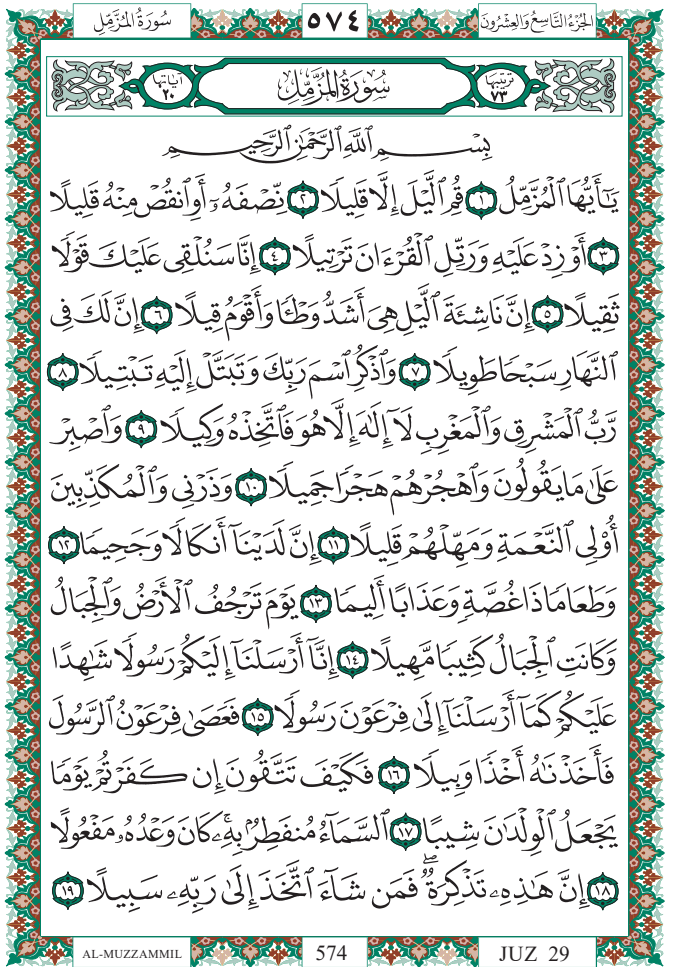 الجُزْءُ التَّاسِعُ وَالعِشْرُونَ ٥٧٤ سُورَةُ المُزَّمِّل
ترتيبها ٧٣ سُورَةُ المُزَّمِّلِ آياتها ٢٠
بِسْمِ ٱللَّهِ ٱلرَّحْمَٰنِ ٱلرَّحِيمِ
يَٰٓأَيُّهَا ٱلْمُزَّمِّلُ ١ قُمِ ٱلَّيْلَ إِلَّا قَلِيلًا ٢ نِّصْفَهُۥٓ أَوِ ٱنقُصْ مِنْهُ قَلِيلًا
٣ أَوْ زِدْ عَلَيْهِ وَرَتِّلِ ٱلْقُرْءَانَ تَرْتِيلًا ٤ إِنَّا سَنُلْقِى عَلَيْكَ قَوْلًا
ثَقِيلًا ٥ إِنَّ نَاشِئَةَ ٱلَّيْلِ هِىَ أَشَدُّ وَطْـًٔا وَأَقْوَمُ قِيلًا ٦ إِنَّ لَكَ فِى
ٱلنَّهَارِ سَبْحًا طَوِيلًا ٧ وَٱذْكُرِ ٱسْمَ رَبِّكَ وَتَبَتَّلْ إِلَيْهِ تَبْتِيلًا ٨
رَّبُّ ٱلْمَشْرِقِ وَٱلْمَغْرِبِ لَآ إِلَٰهَ إِلَّا هُوَ فَٱتَّخِذْهُ وَكِيلًا ٩ وَٱصْبِرْ
عَلَىٰ مَا يَقُولُونَ وَٱهْجُرْهُمْ هَجْرًا جَمِيلًا ١٠ وَذَرْنِى وَٱلْمُكَذِّبِينَ
أُو۟لِى ٱلنَّعْمَةِ وَمَهِّلْهُمْ قَلِيلًا ١١ إِنَّ لَدَيْنَآ أَنكَالًا وَجَحِيمًا ١٢
وَطَعَامًا ذَا غُصَّةٍ وَعَذَابًا أَلِيمًا ١٣ يَوْمَ تَرْجُفُ ٱلْأَرْضُ وَٱلْجِبَالُ
وَكَانَتِ ٱلْجِبَالُ كَثِيبًا مَّهِيلًا ١٤ إِنَّآ أَرْسَلْنَآ إِلَيْكُمْ رَسُولًا شَٰهِدًا
عَلَيْكُمْ كَمَآ أَرْسَلْنَآ إِلَىٰ فِرْعَوْنَ رَسُولًا ١٥ فَعَصَىٰ فِرْعَوْنُ ٱلرَّسُولَ
فَأَخَذْنَٰهُ أَخْذًا وَبِيلًا ١٦ فَكَيْفَ تَتَّقُونَ إِن كَفَرْتُمْ يَوْمًا
يَجْعَلُ ٱلْوِلْدَٰنَ شِيبًا ١٧ ٱلسَّمَآءُ مُنفَطِرٌۢ بِهِۦ ۚ كَانَ وَعْدُهُۥ مَفْعُولًا
١٨ إِنَّ هَٰذِهِۦ تَذْكِرَةٌ ۖ فَمَن شَآءَ ٱتَّخَذَ إِلَىٰ رَبِّهِۦ سَبِيلًا ١٩
AL-MUZZAMMIL 574 JUZ 29